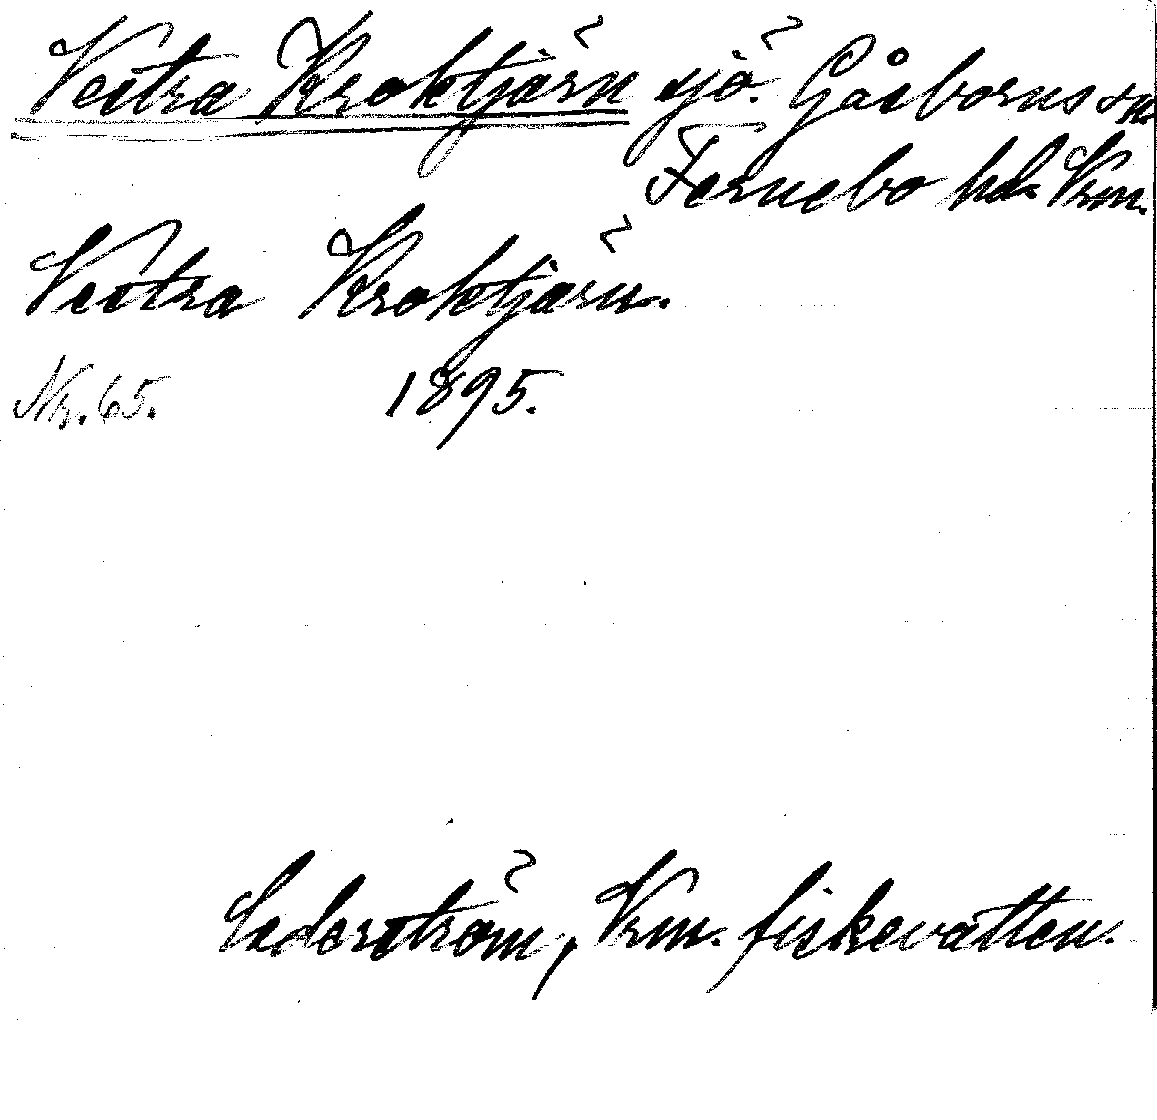 Vestra Kroktjärn sjö. Gåsborns sn
Fernebo hd. Vrm.
Vestra Kroktjärn.
Nr. 65. 1895.
Cederström, Vrm. fiskevatten.